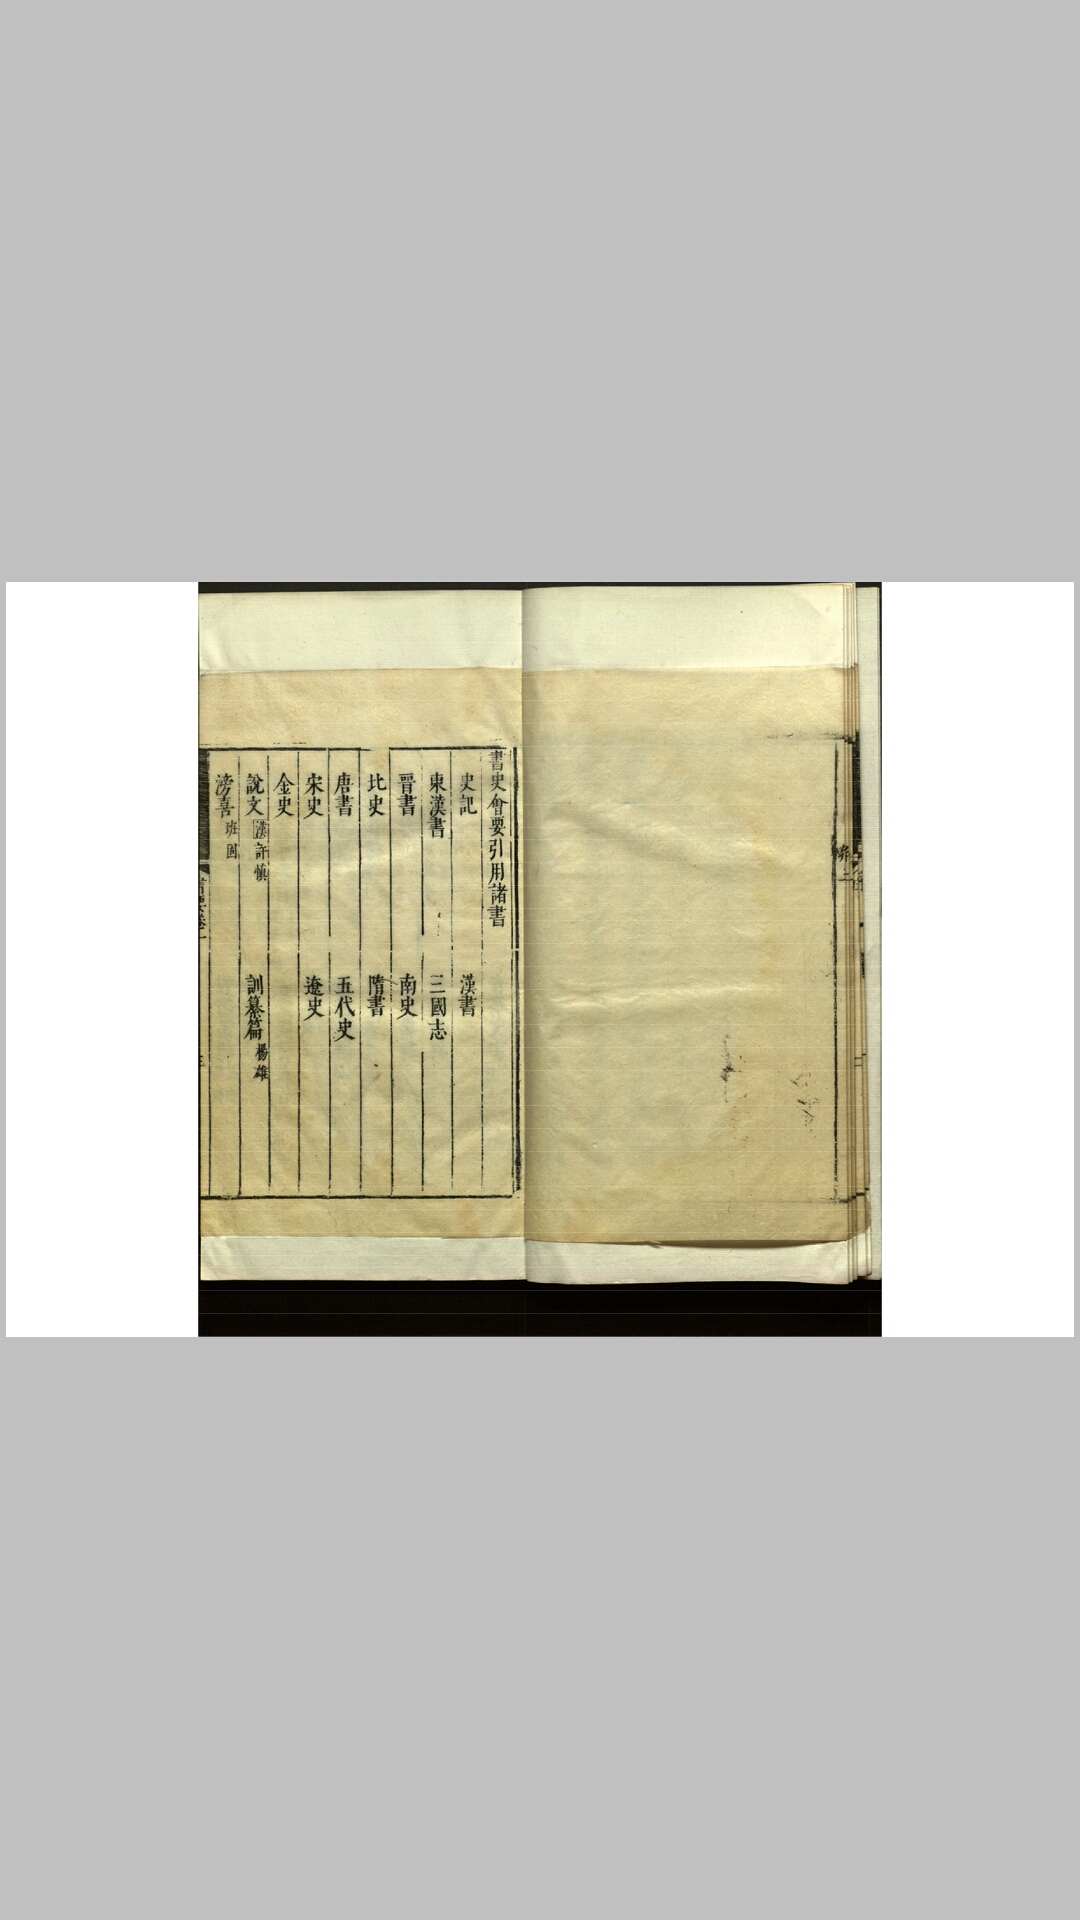 書史會要引用諸書
史記 漢書
東漢書 三國志
晉書 南史
北史 隋書
唐書 五代史
宋史 遼史
金史
說文 漢許慎 訓纂篇 楊雄
滂喜 班固